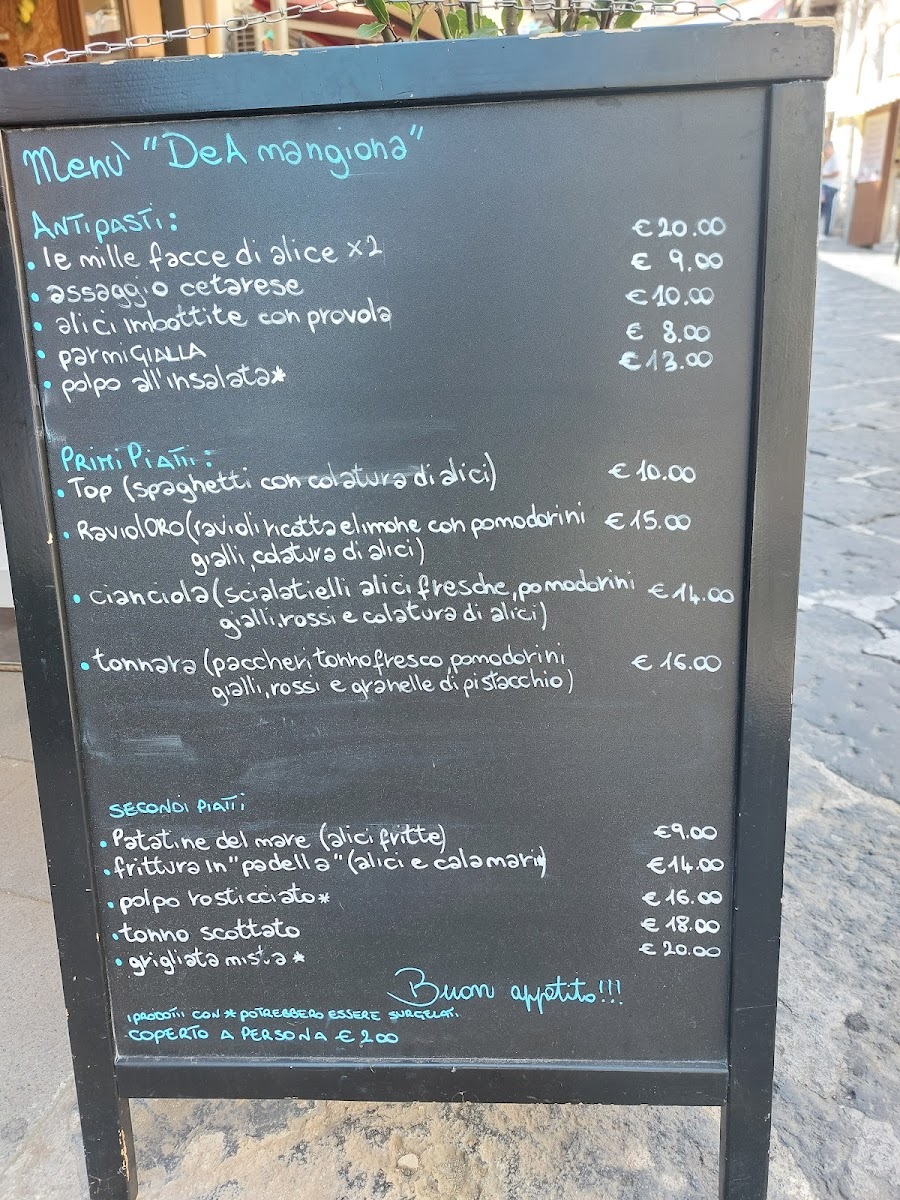 Menù "DeA mangiona"
ANTIPASTI:
• le mille facce di alice x2 € 20.00
• assaggio cetarese € 9.00
• alici imbottite con provola € 10.00
• parmiGIALLA € 8.00
• polpo all'insalata* € 13.00
PRIMI PIATTI:
• TOP (spaghetti con colatura di alici) € 10.00
• RaviolORO (ravioli ricotta e limone con pomodorini € 15.00
gialli, colatura di alici)
• cianciola (scialatielli alici fresche, pomodorini € 14.00
gialli, rossi e colatura di alici)
• tonnara (paccheri, tonno fresco, pomodorini € 16.00
gialli, rossi e granelle di pistacchio)
SECONDI PIATTI
• Patatine del mare (alici fritte) € 9.00
• frittura in "padella" (alici e calamari*) € 14.00
• polpo rosticciato* € 16.00
• tonno scottato € 18.00
• grigliata mista* € 20.00
Buon appetito!!!
I PRODOTTI CON * POTREBBERO ESSERE SURGELATI.
COPERTO A PERSONA € 2.00